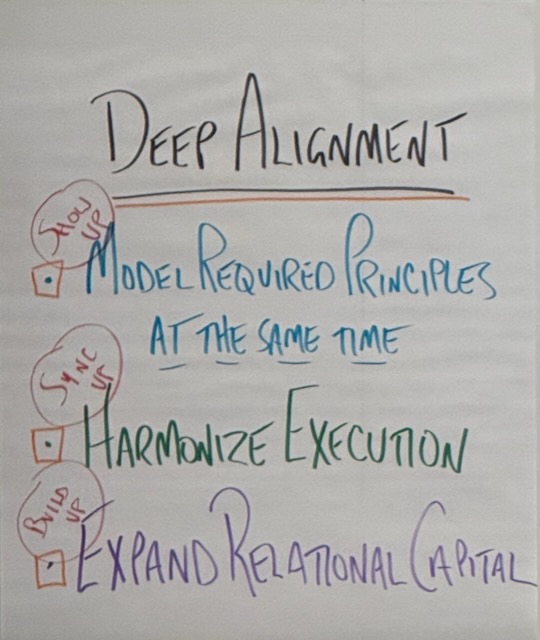 DEEP ALIGNMENT
SHOW
UP
MODEL REQUIRED PRINCIPLES
AT THE SAME TIME
SYNC
UP
HARMONIZE EXECUTION
BUILD
UP
EXPAND RELATIONAL CAPITAL